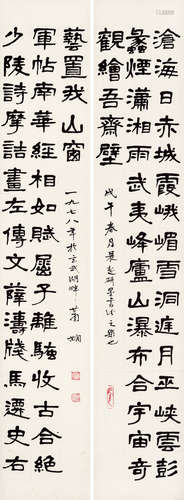 滄海日赤城霞峨嵋雪洞庭月巫峽雲彭
蠡煙瀟湘雨武夷峰廬山瀑布合宇宙奇
觀繪吾齋壁
戊午春月晨起研墨書此之樂也
少陵詩摩詰畫左傳文薛濤牋馬遷史右
軍帖南華經相如賦屈子離騷收古今絕
藝置我山窗
一九七八年於玄武湖畔 蕭嫻